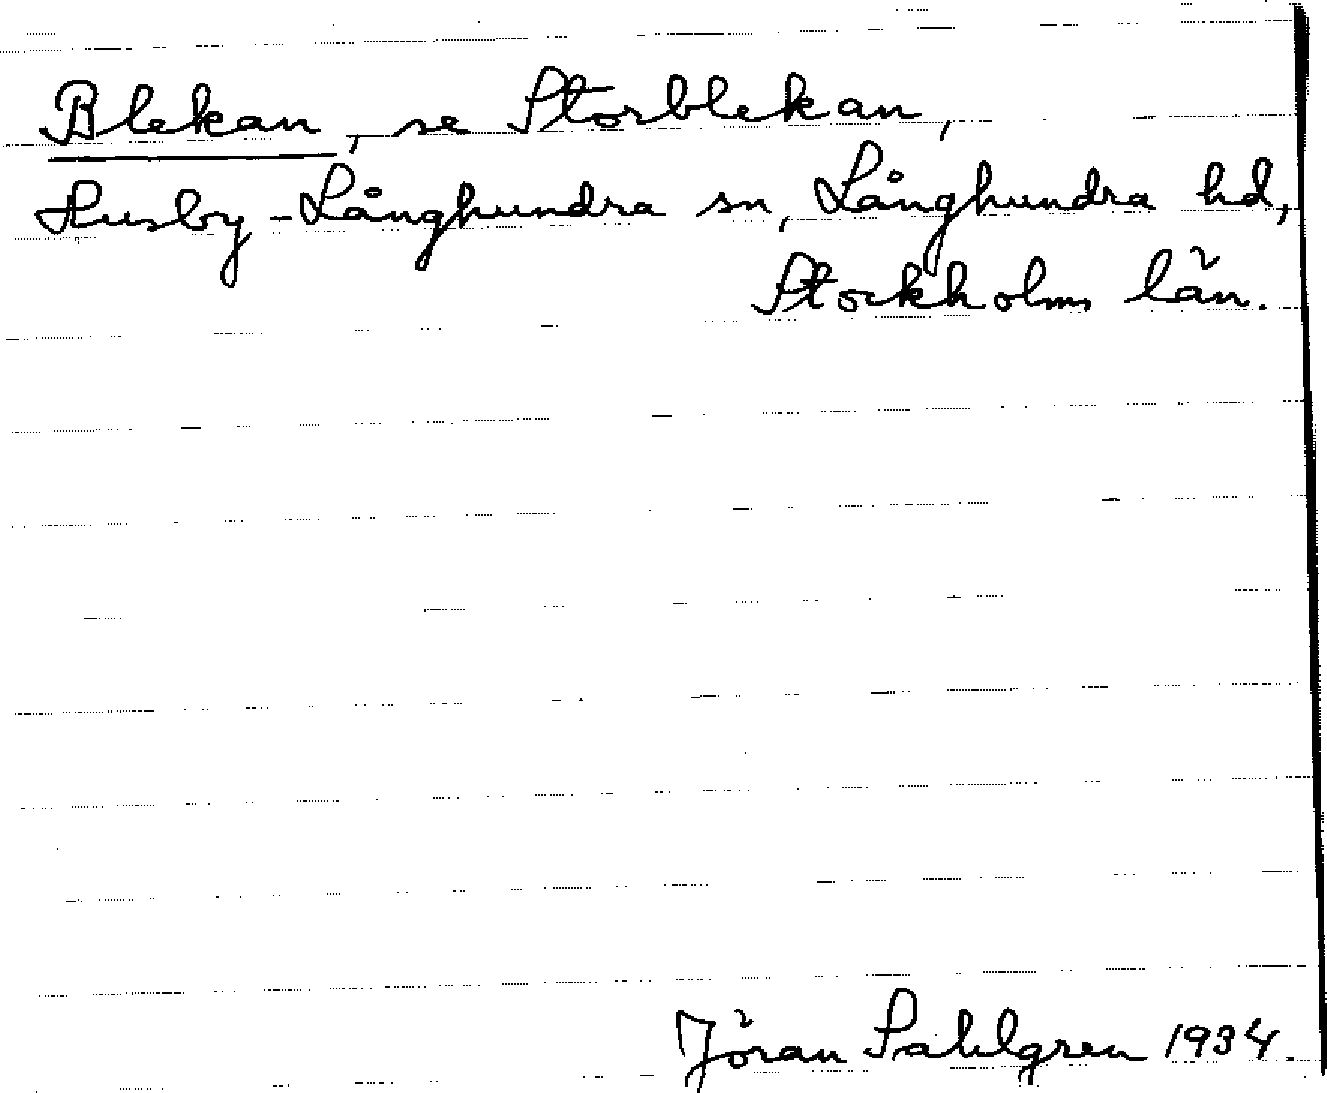 Blekan, se Storblekan,
Husby-Långhundra sn, Långhundra hd,
Stockholms län.
Jöran Sahlgren 1934.